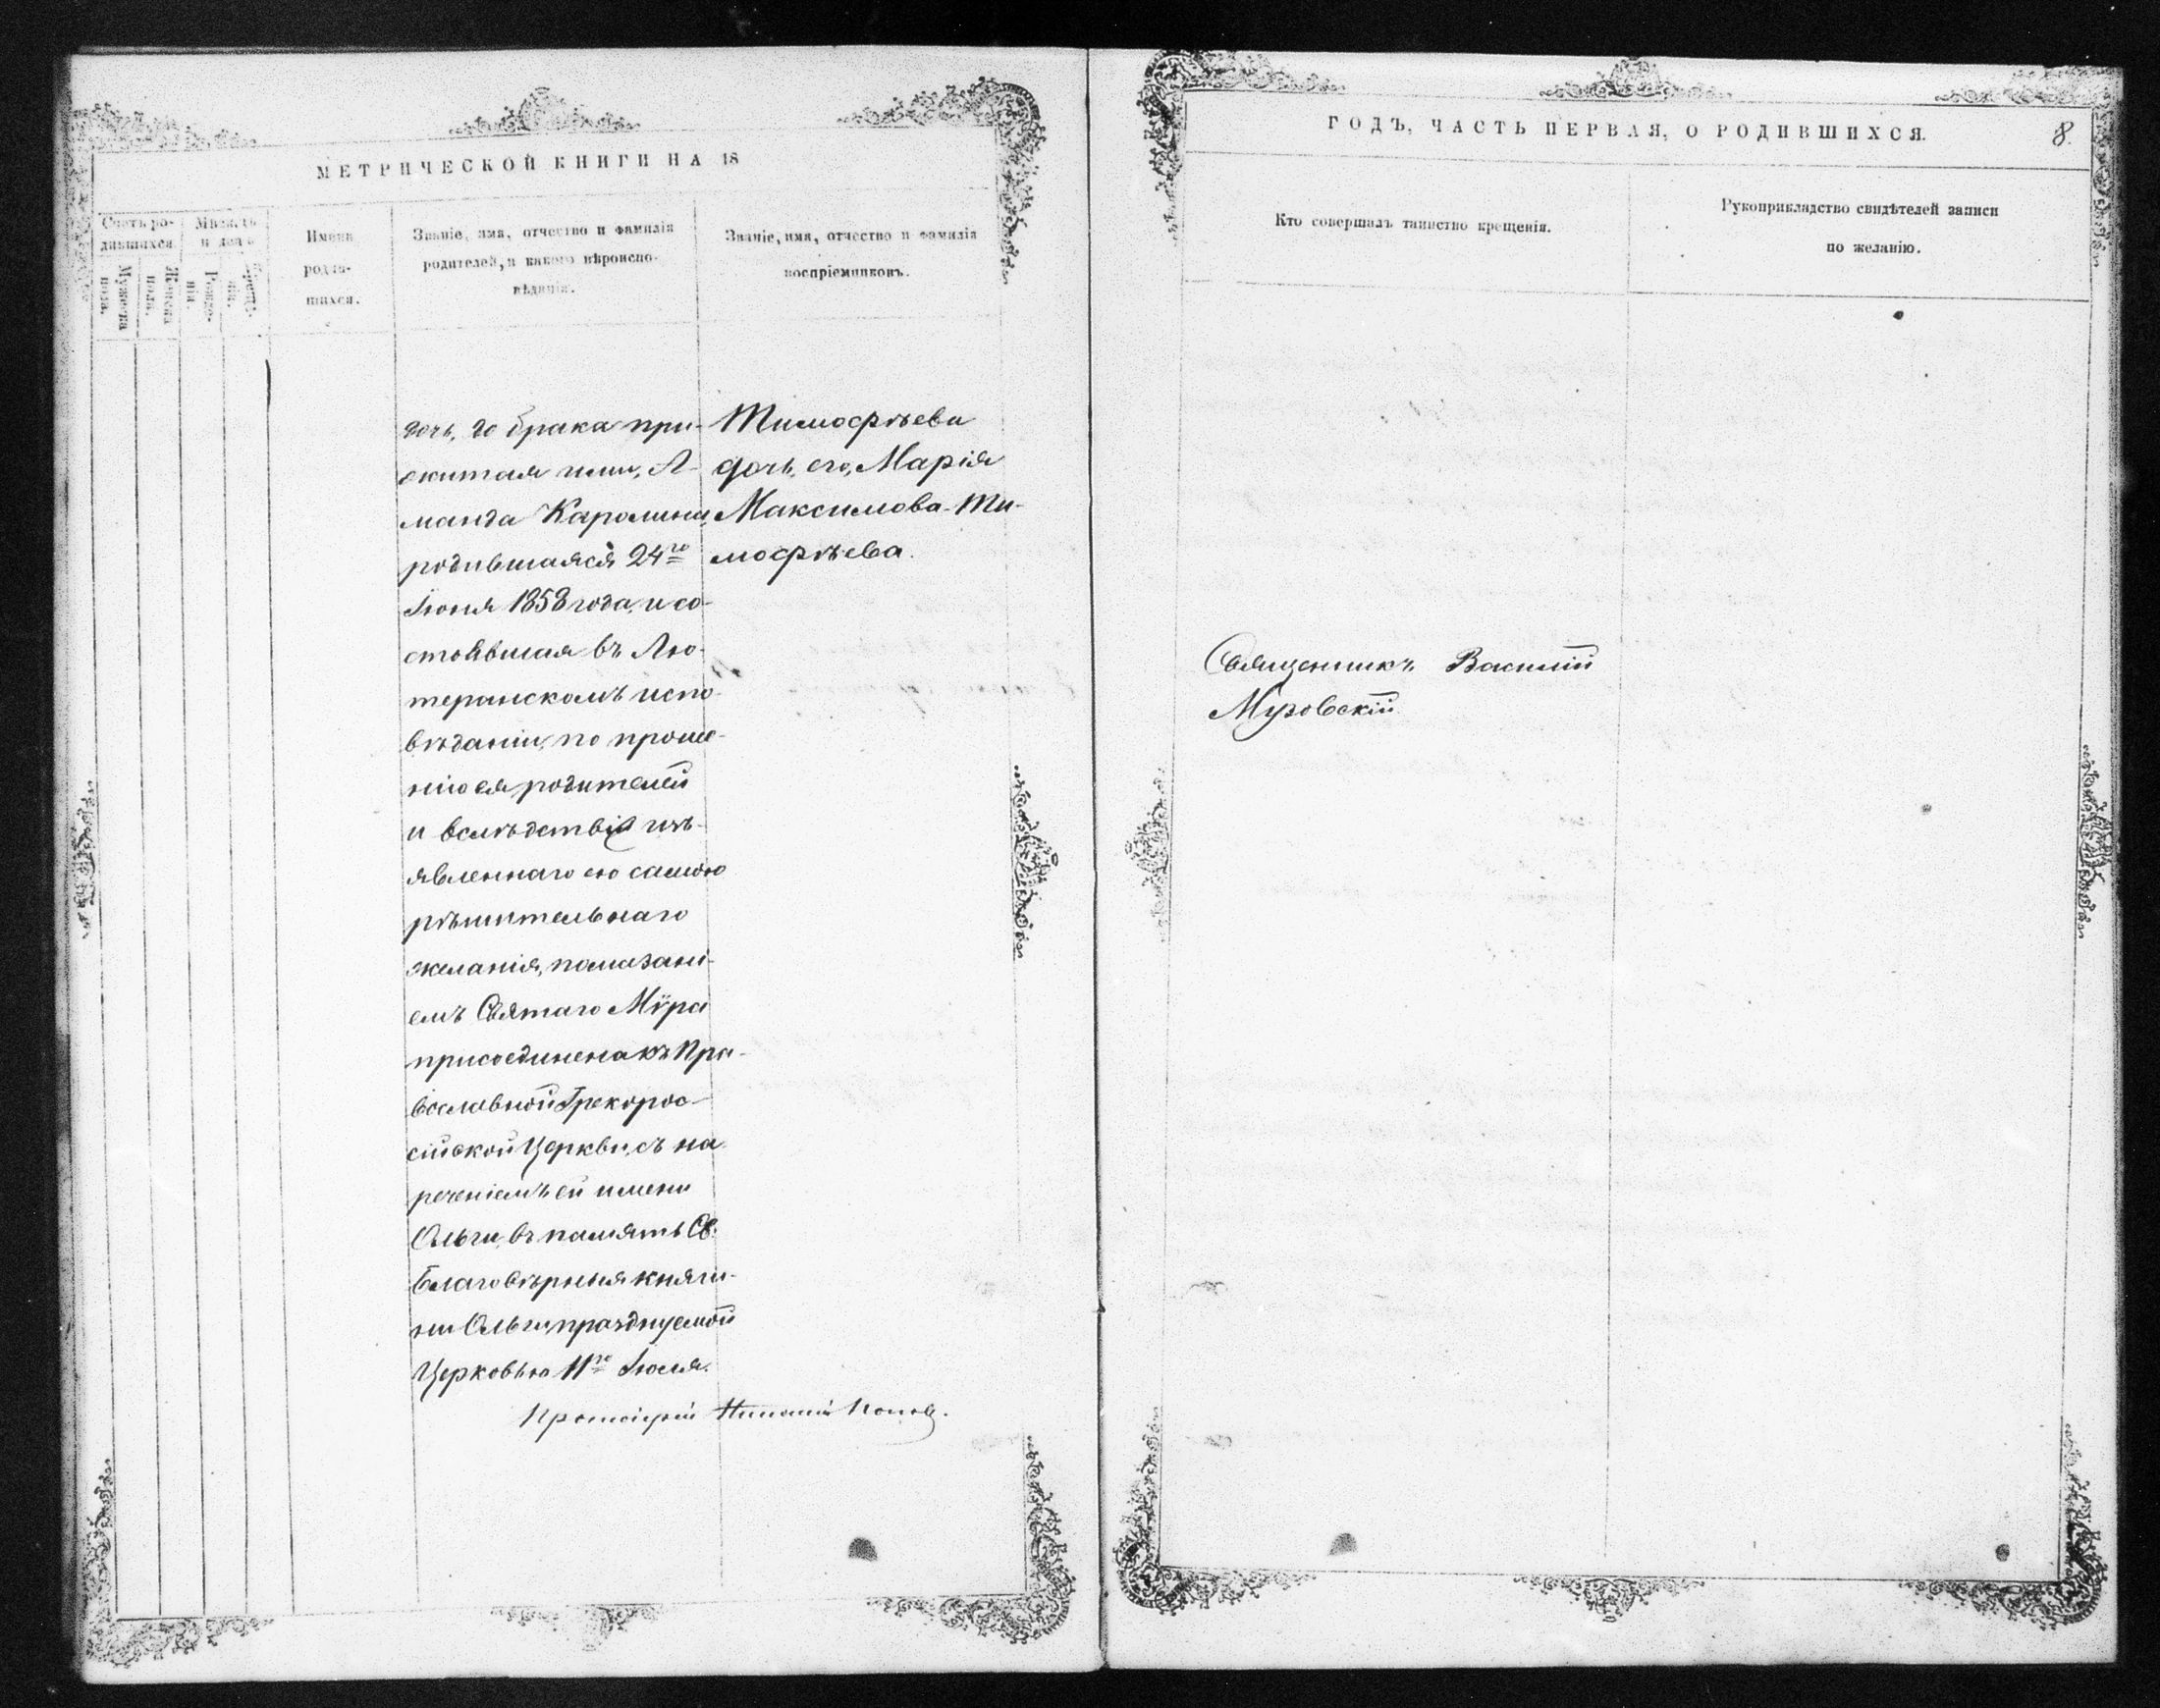 МЕТРИЧЕСКОЙ КНИГИ НА 18
Счетъ родившихся.
Мужеска пола.
Женска пола.
Мѣсяцъ и день
Рождения.
Крещения.
Имена
родив-
шихся.
Званіе, имя, отчество и фамилія
родителей, и какого вѣроиспо-
вѣданія.
Званіе, имя, отчество и фамилія
воспріемниковъ.
дочь, до брака при-
житая ими, А-
манда Каролина,
родившаяся 24го
Іюня 1858 года, и со-
стоявшая въ Лю-
теранскомъ испо-
вѣданіи, по проше-
нію ея родителей
и вслѣдствіе изъ-
явленнаго ею самою
рѣшительнаго
желанія, помазані-
емъ Святаго Мѵра
присоединена къ Пра-
вославной Грекорос-
сійской Церкви, съ на
реченіемъ ей имени
Ольги, въ память Св.
Благовѣрныя княги-
ни Ольги, празднуемой
Церковью 11го Іюля.
Протоіерей Попов.
Тимофѣева
дочь его, Марія
Максимова Ти-
мофѣева.
ГОДЪ, ЧАСТЬ ПЕРВАЯ, О РОДИВШИХСЯ.
8.
Кто совершалъ таинство крещенія.
Рукоприкладство свидѣтелей записи
по желанію.
Священникъ Василій
Музовскій